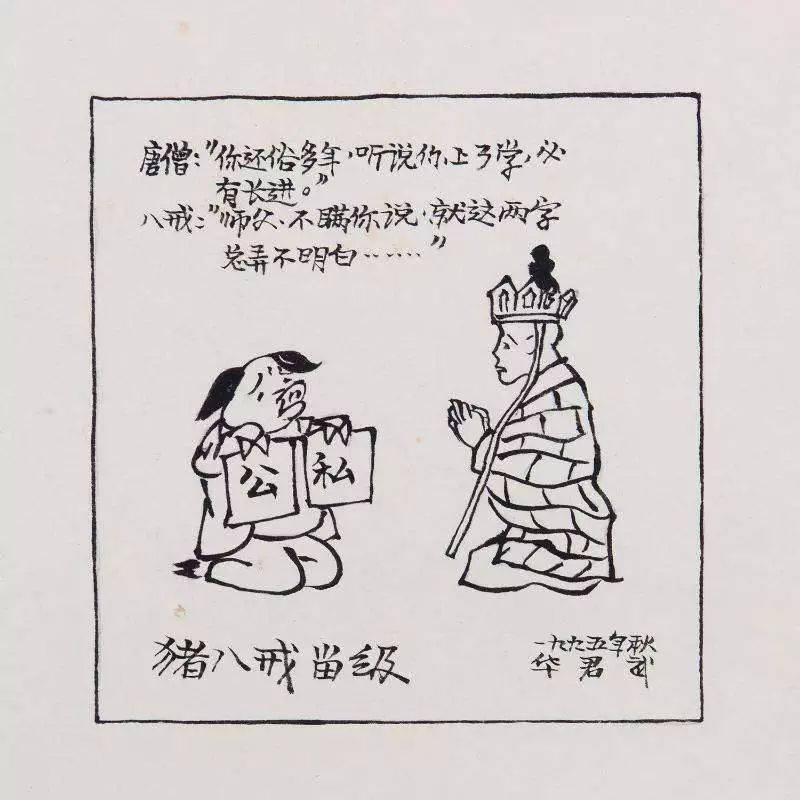 唐僧：“你还俗多年，听说你上了学，必
有长进。”
八戒：“师父，不瞒你说，就这两字
总弄不明白……”
公
私
猪八戒留级
一九九五年秋
华君武